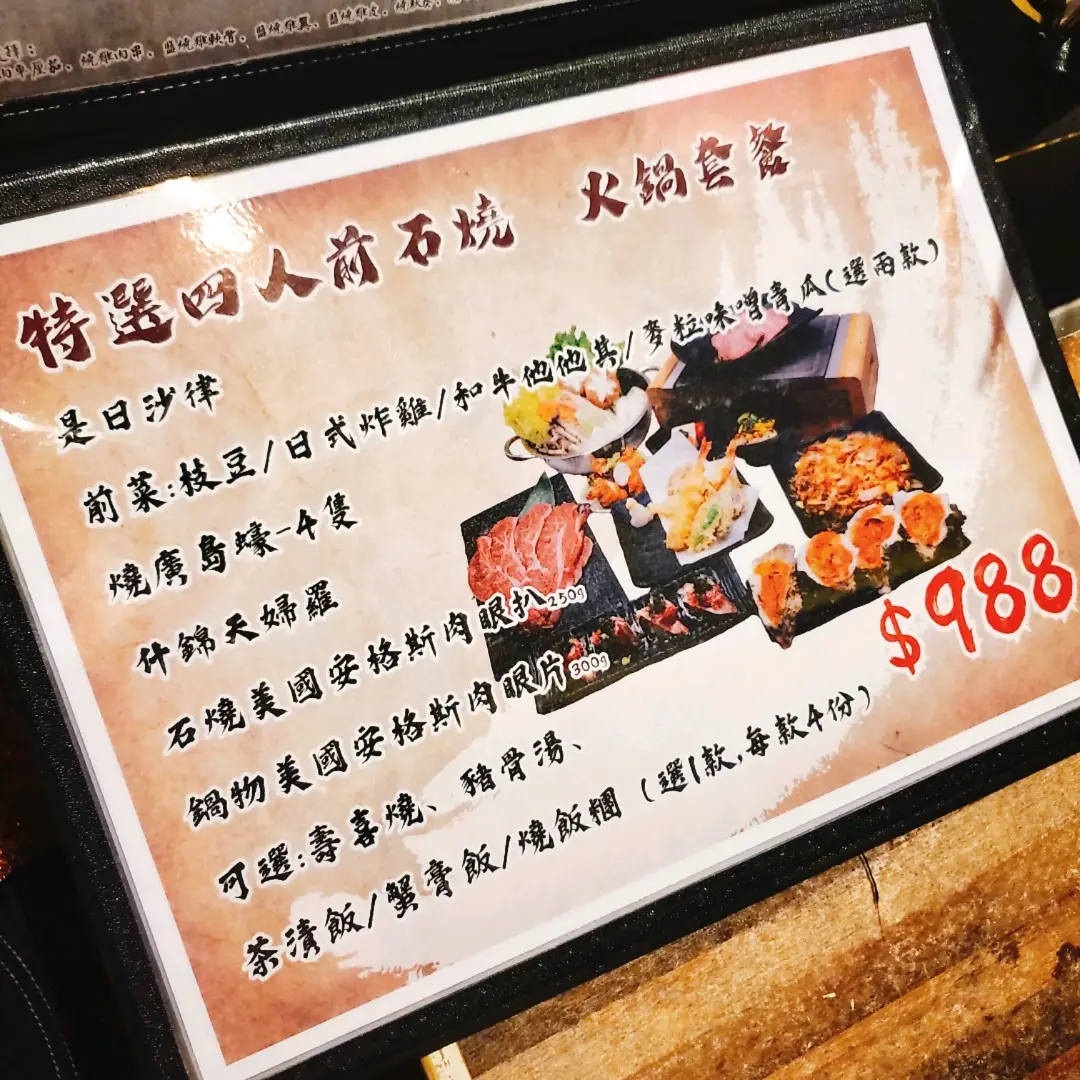 擇：
燒雞肉串、鹽燒雞軟骨、鹽燒雞翼、鹽燒雞皮、
特選四人前石燒 火鍋套餐
是日沙律
前菜:枝豆/日式炸雞/和牛他他其/麥粒味噌青瓜(選兩款)
燒廣島蠔-4隻
什錦天婦羅
石燒美國安格斯肉眼扒250g
鍋物美國安格斯肉眼片300g
可選:壽喜燒、豬骨湯、
茶漬飯/蟹膏飯/燒飯糰 (選1款,每款4份)
$988